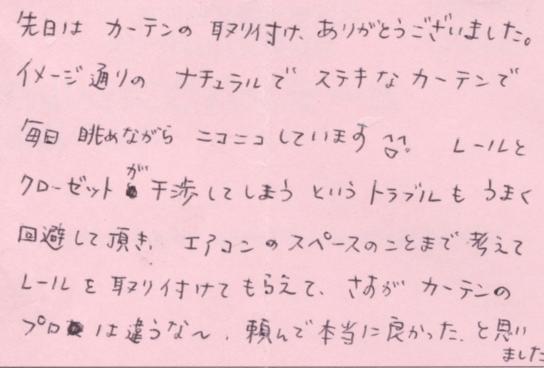 先日は カーテンの 取り付け、ありがとうございました。
イメージ通りの ナチュラルで ステキな カーテンで
毎日 眺めながら ニコニコしています。 レールと
クローゼットが干渉してしまう という トラブルも うまく
回避して頂き、エアコンのスペースのことまで 考えて
レールを 取り付けてもらえて、さすが カーテンの
プロは違うな〜、頼んで本当に良かった、と思い
ました